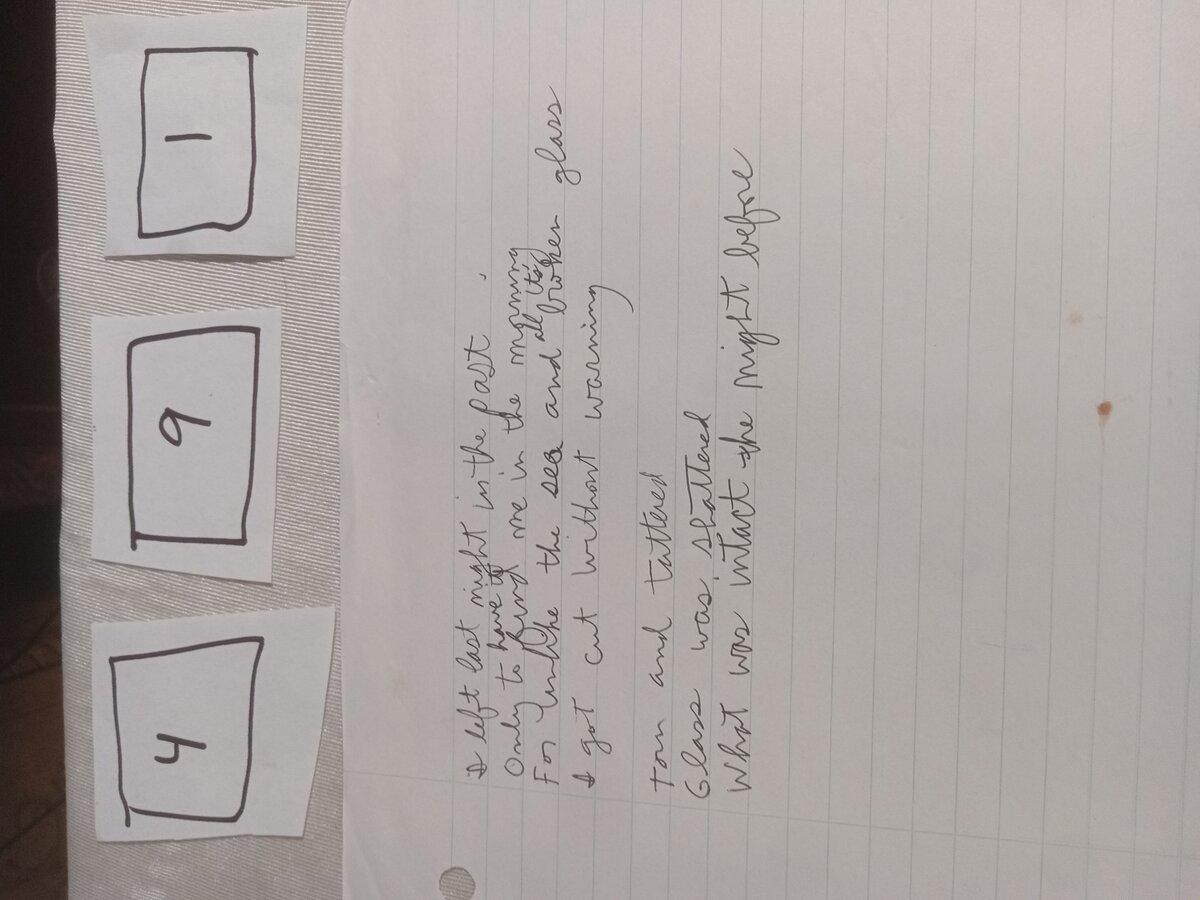 4 9 1
I left last night in the past,
Only to have to find me in the morning
For unlike the sea and all its broken glass
I got cut without warning
Torn and tattered
Glass was shattered
What was intact the night before